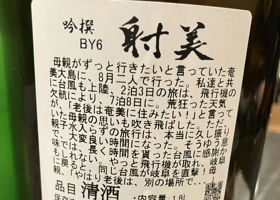 吟撰
BY6
射美
母親がずっと行きたいと言っていた奄
美大島に、8月二人で行った。私達と共
に台風も上陸、2泊3日の旅は、飛行機の
欠航により、7泊8日に。荒狂った天気
が、「老後は奄美に住みたい!」と言って
いた母親の思いも吹き飛ばした。ただ、
親子水入らずの旅行は、本当に久し振り
で大変良い時間になった。そうゆう意
味では、長く時間を貰った台風に感謝か
も? やっと飛行機が取れ、岐阜
に戻る。同じ台風が岐阜を直撃!母
は「やはり老後は、別の場所で、
品目 清酒
1.8l